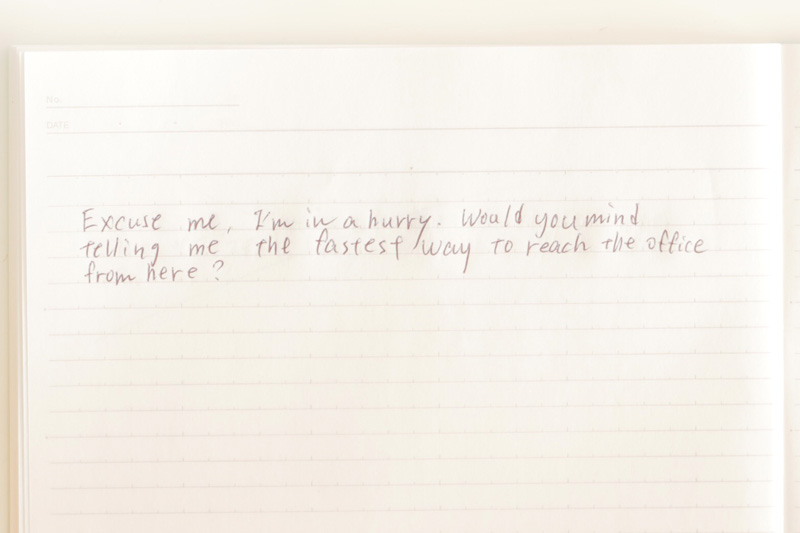 No.
DATE
Excuse me, I'm in a hurry. Would you mind
telling me the fastest way to reach the office
from here?